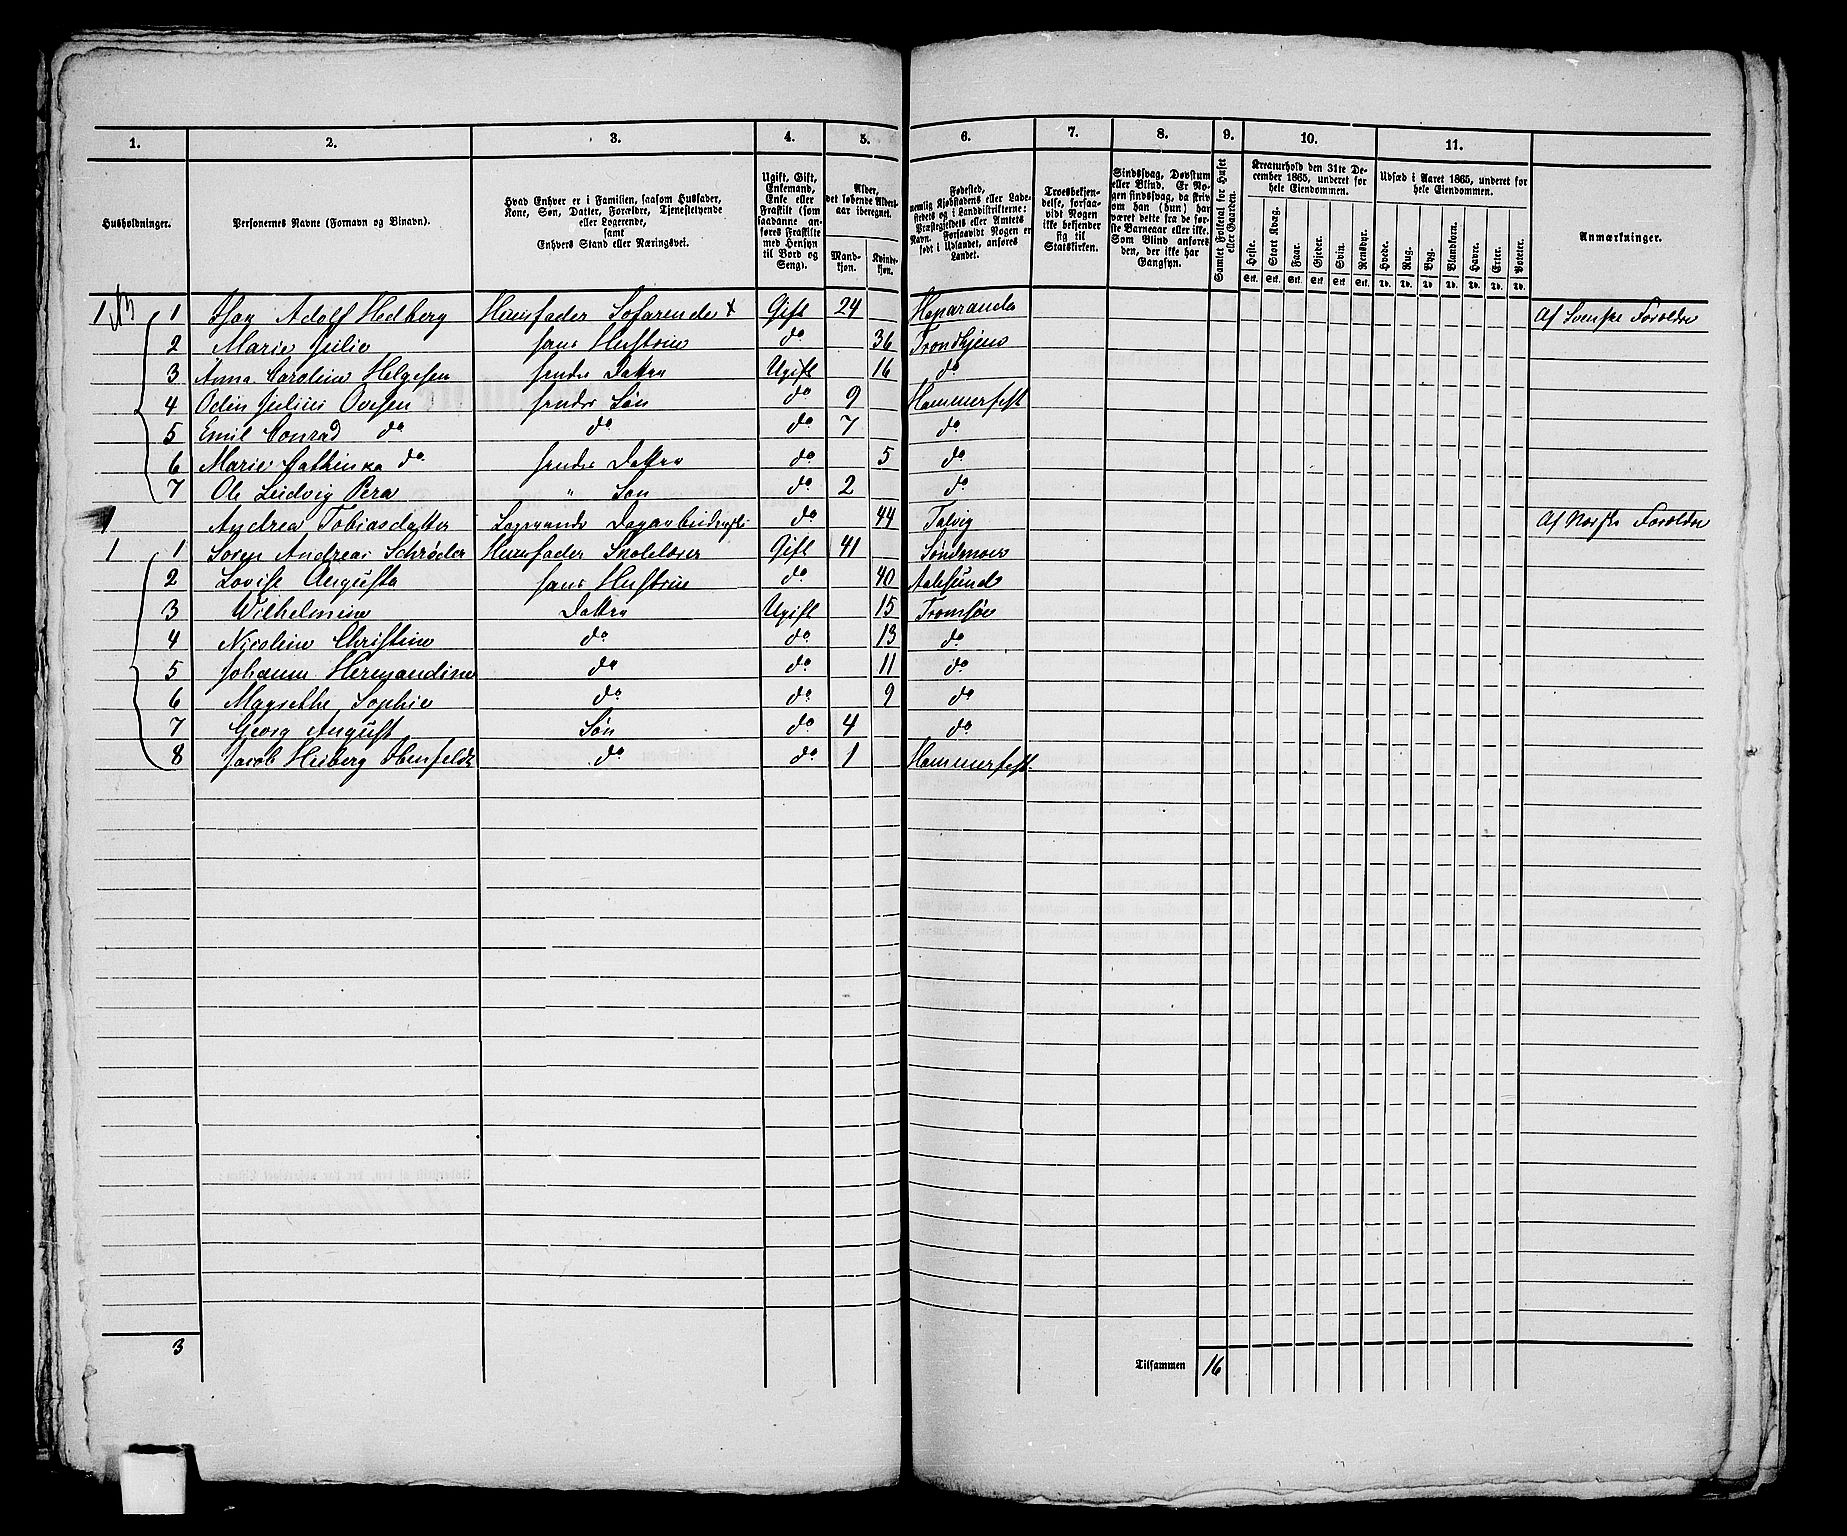 1. 2. 3. 4. 5. 6. 7. 8. 9. 10. 11.
Husholdninger.
Personernes Navne (Fornavn og Binavn).
Hvad Enhver er i Familien, saasom Husfader,
Kone, Søn, Datter, Forældre, Tjenestetyende
eller Logerende,
samt
Enhvers Stand eller Næringsvei.
Ugift, Gift,
Enkemand,
Enke eller
Fraskilt (som
saadanne anføres Fraskilte
med Hensyn
til Bord og
Seng).
Alder,
det løbende Alders-
aar iberegnet.
Mand-
kjøn.
Kvinde-
kjøn.
Fødested,
nemlig Kjøbstadens eller Lade-
stedets og i Landdistrikterne:
Præstegjeldets eller Amtets
Navn. Forsaavidt Nogen er
født i Udlandet, anføres
Landet.
Troesbekjen-
delse, forsaa-
vidt Nogen
ikke bekjender
sig til
Statskirken.
Sindssvag, Døvstum
eller Blind. Er No-
gen sindssvag, da skriv
om han (hun) har
været dette fra de før-
ste Barneaar eller ikke.
Som Blind anføres
den, der ikke har
Gangsyn.
Samlet Folketal for Huset
eller Gaarden.
Kreaturhold den 31te De-
cember 1865, underet for
hele Eiendommen.
Heste. Stort Kvæg. Faar. Gjeder. Svin. Rensdyr.
Stk. Stk. Stk. Stk. Stk. Stk.
Udsæd i Aaret 1865, underet for
hele Eiendommen.
Hvede. Rug. Byg. Blandkorn. Havre. Erter. Poteter.
Td. Td. Td. Td. Td. Td. Td.
Anmærkninger.
1 1 Adolf Hedberg Huusfader Gift 24 Haparanda Af Svenske Forældre
2 Marie Julie hans Hustrue do 36 Trondhjem
3 Anna Caroline Helgesen hendes Datter Ugift 16 do
4 Odin Julius Ovesen hendes Søn do 9 Hammerfest
5 Emil Conrad do do do 7 do
6 Marie Cathinka do hendes Datter do 5 do
7 Ole Ludvig Pera " Søn do 2 do
1 Andrea Tobiasdatter Logerende do 44 Talvig Af Norske Forældre
1 1 Søren Andreas Schrøder Huusfader Skolelærer Gift 41 Søndmøer
2 Lovise Augusta hans Hustrue do 40 Aalesund
3 Wilhelmine Datter Ugift 15 Tromsøe
4 Nicoline Christine do do 13 do
5 Johanne Hermandine do do 11 do
6 Magrethe Sophie do do 9 do
7 Georg August Søn do 4 do
8 Jacob Heiberg do do 1 Hammerfest.
3
Tilsammen 16